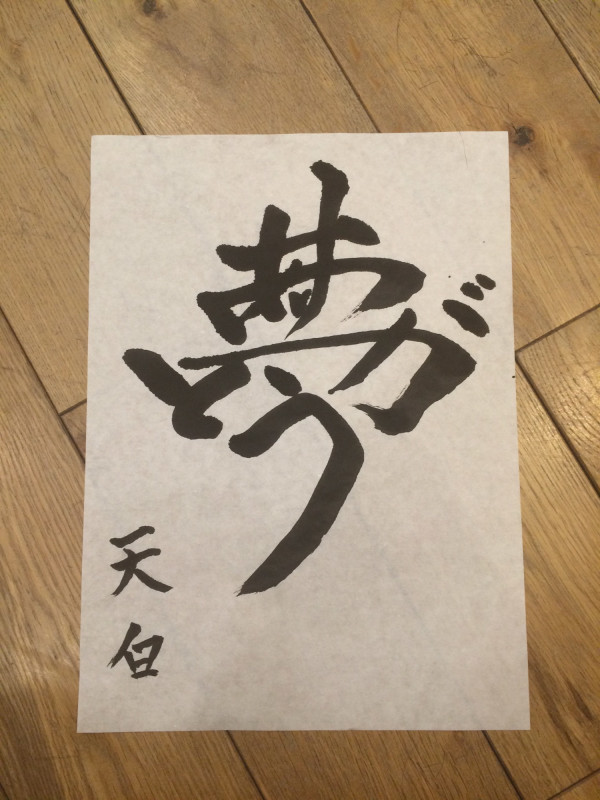 ありがとう
天白